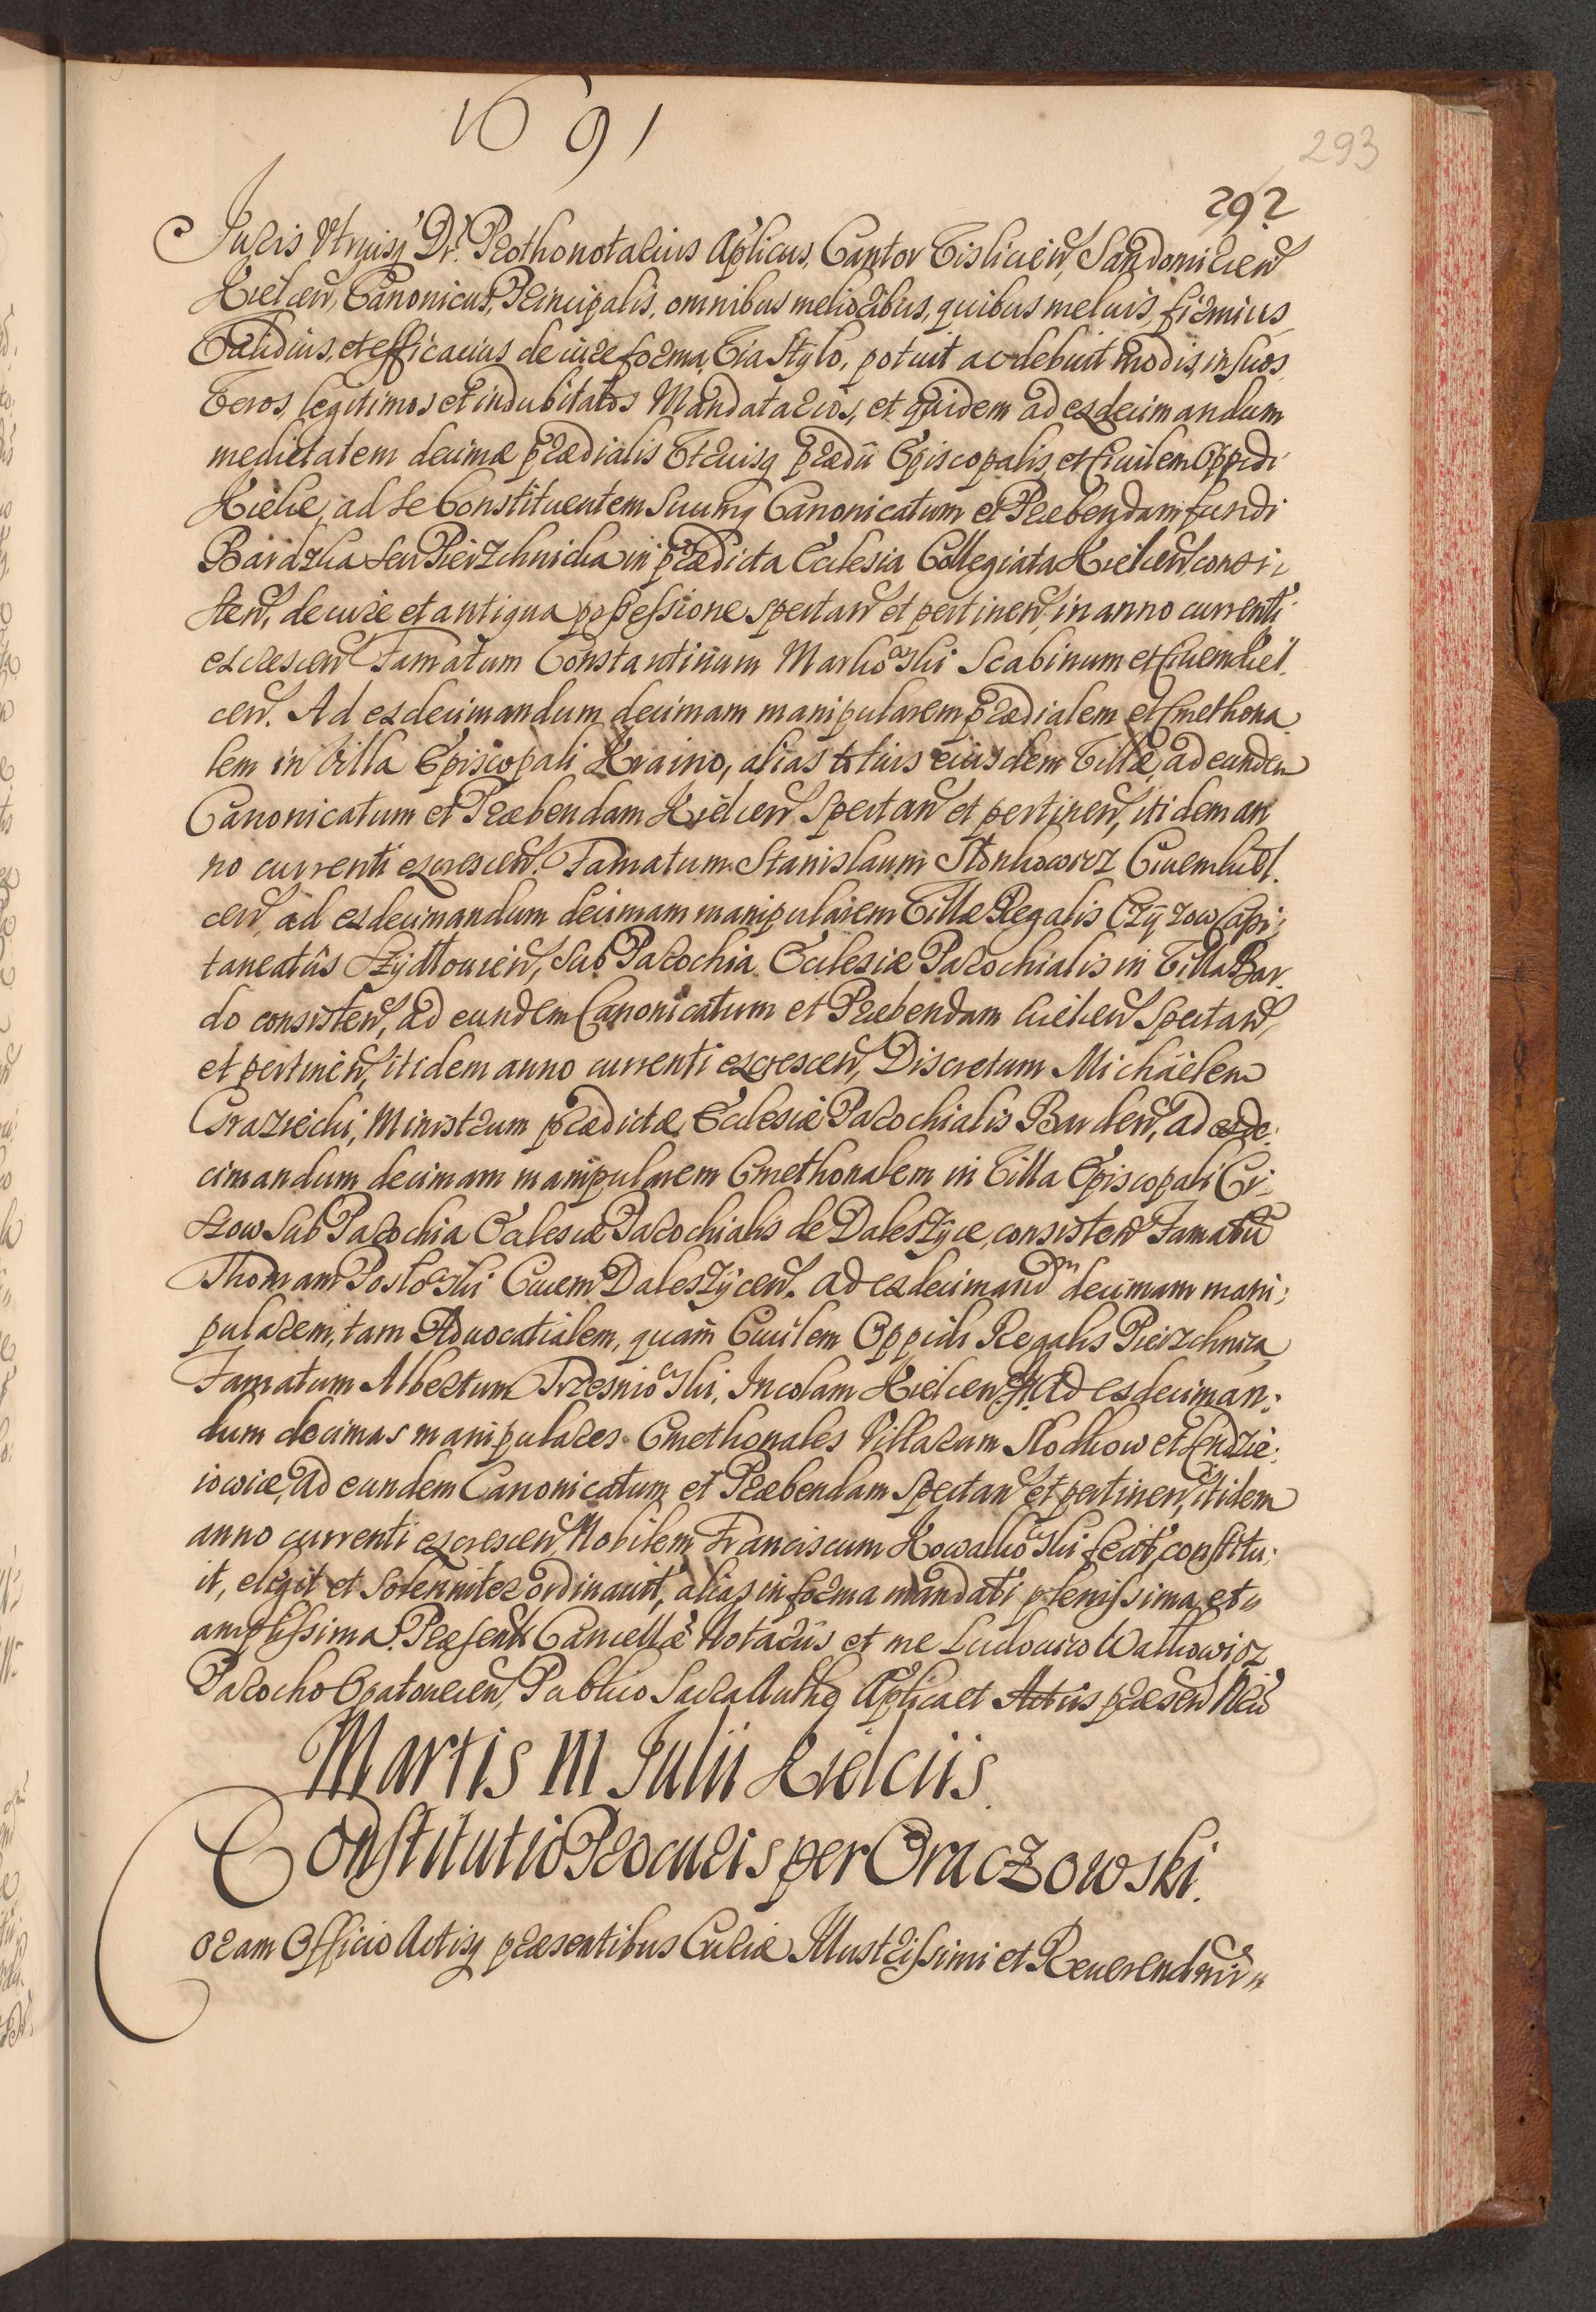 1691
293
292
Juris Utriusq Dr. Prothonotarius Aplicus, Cantor Visliciens, Sandomiriens
Kielcens, Canonicus, Principalis, omnibus melioribus, quibus melius, firmius
Validius, et efficacius de iure forma, Via Stylo, potuit ac debuit modis, in suos
Veros, legitimos et indubitatos Mandatarios, et quidem ad exdecimandum
medietatem decimæ prædialis Utriusq prædii Episcopalis, et Ciuilem Oppidi
Kielce, ad se Constituentem Suumq Canonicatum et Præbendam fundi
Bardzka seu Pierzchnicka in prædicta Ecclesia Collegiata Kielcens, consi-
stens, de iure et antiqua possessione spectans et pertinens, in anno currenti
excrescens Famatum Constantinum Marko Ski Scabinum et Ciuem Kiel.
cens. Ad exdecimandum decimam manipularem prædialem et Cmethona
lem in Villa Episcopali Kraino, alias totius eiusdem Villæ, ad eundem
Canonicatum et Præbendam Kielcens Spectans et pertinens, itidem an
no currenti excrescens. Famatum Stanislaum Stonkowicz Ciuem Kiel.
cens, ad exdecimandum decimam manipularem Villæ Regalis Czyzow Capi-
taneatûs Szydlouiens, Sub Parochia Ecclesiæ Parochialis in Villa Bar.
do consistens, ad eundem Canonicatum et Præbendam Kielcens Spectans,
et pertinens, itidem anno currenti excrescens, Discretum Michäelem
Graziecki, Ministrum prædictæ Ecclesiæ Parochialis Bardens, ad exde-
cimandum decimam manipularem Cmethonalem in Villa Episcopali Ci-
szow Sub Parochia Ecclesiæ Parochialis de Daleszyce, consistens Famatũ
Thomam Poslo Ski Ciuem Daleszycens. Ad exdecimandm decimam mani-
pularem, tam Aduocatialem, quam Ciuilem Oppidi Regalis Pierzchnica
Famatum Albertum Trzesnio Ski, Incolam Kielcens. Ad exdeciman-
dum decimas manipulares Cmethonales Villarum Slodkow et Jendrie-
iowicæ, ad eundem Canonicatum et Præbendam Spectans et pertinens, itidem
anno currenti excrescens, Nobilem Franciscum Kowalko Ski fecit, constitu-
it, elegit et Solenniter ordinauit, alias in forma mandati plenissima et
amplissima. Præsent Cancellæ Notariis et me Ludouico Walkowicz
Parocho Opatouiecens, Publico Sacra Autho Aplica et Actis præsens Nrio
Martis III Julii Kielciis.
Constitutio Procuris per Oraczowski.
oram Officio Actisq præsentibus Curiæ Illustrissimi et Reuerendmi